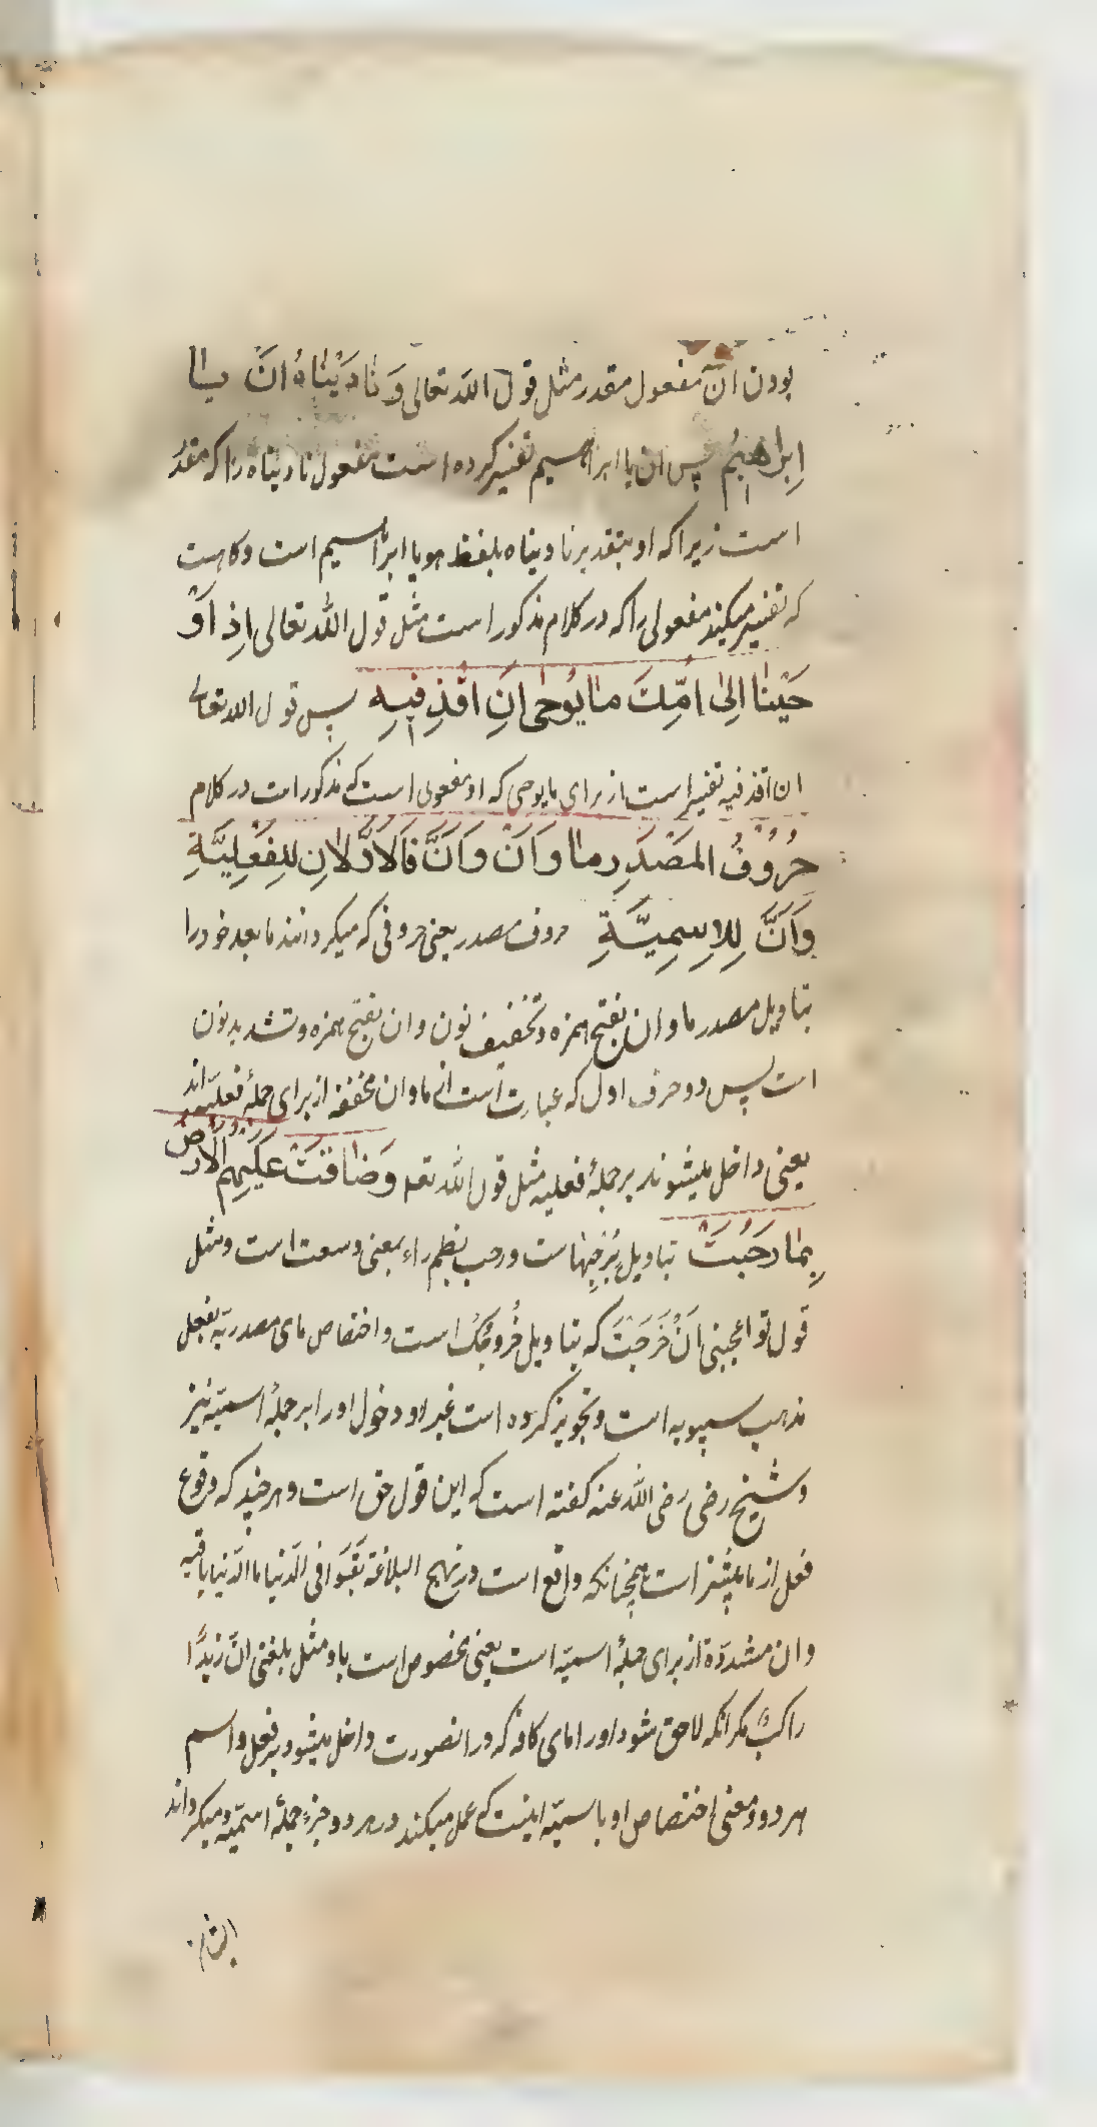 بودن آن مفعول مقدر مثل قول الله تعالی وَنَادَيْنَاهُ اَنْ یا
اِبْرٰاهیٖمُ پس ان یا ابراهیم تفسیر کرده است مفعول نادیناه را که مقدر
است زیرا که او بتقدیر نادیناه بلفظ هو یا ابراهیم است و کاهست
که تفسیر میکند مفعولی را که در کلام مذکور است مثل قول الله تعالی اِذْ اَوْ
حَيْنٰا اِلىٰ اُمِّكَ مٰا يُوحىٰ اَنِ اقْذِفيهِ پس قول الله تعالی
ان اقذفیه تفسیر است از برای ما یوحی که او مفعول است که مذکور است در کلام
حُرُوفُ المَصْدَرِ مٰا وَاَنْ وَاَنَّ فَالاَوَّلاٰنِ لِلفِعْلِيَّةِ
وَاَنَّ لِلاِسمِيَّةِ حروف مصدر یعنی حروفی که میکردانند ما بعد خود را
بتاویل مصدر ما و ان بفتح همزه و تخفیف نون و ان بفتح همزه و تشدید نون
است پس دو حرف اول که عبارت است از ما و ان مخففه از برای جملهٔ فعلیه‌اند
یعنی داخل میشوند بر جملهٔ فعلیه مثل قول الله تعه وَضٰاقَتْ عَلَيْهِمُ الاَرْضُ
بِمٰا رَحُبَتْ بتاویل بُرحبِهٰا است و رحب بضم راء بمعنی وسعت است و مثل
قول تو اعجبنی اَنْ خَرَجْتَ که بتاویل خُرُوجُكَ است و اختصاص مای مصدریّه بفعل
مذهب سیبویه است و تجویز کرده است غیر او دخول او را بر جملهٔ اسمیّه نیز
و شیخ رضی رضی الله عنه کفته است که این قول حق است و هر چند که وقوع
فعل از ما بیشتر است همچنانکه واقع است در نهج البلاغة بَقَوا فی الدّنیا ما الدّنیا باقیه
و ان مشدّدة از برای جملهٔ اسمیّه است یعنی مخصوص است باو مثل بلغنی انّ زیدًا
راکبٌ مکر آنکه لاحق شود او را مای کافه که در انصورت داخل میشود بر فعل و اسم
هر دو و معنی اختصاص او باسمیّه اینست که عمل میکند در هر دو جزء جملهٔ اسمیّه و میکرداند